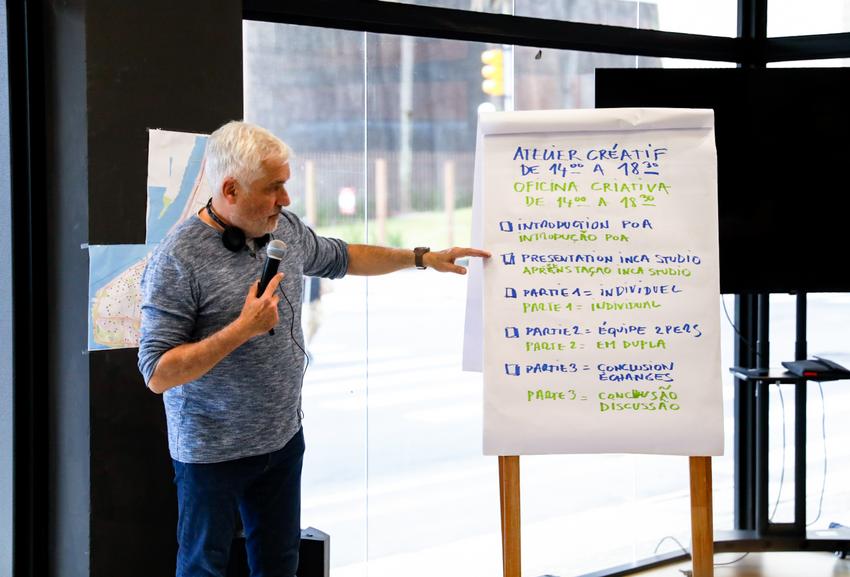 ATELIER CRÉATIF
DE 14⁰⁰ A 18³⁰
OFICINA CRIATIVA
DE 14⁰⁰ A 18³⁰
INTRODUCTION POA
INTRODUÇÃO POA
PRESENTATION INCA STUDIO
APRENSTAÇAO INCA STUDIO
PARTIE 1 = INDIVIDUEL
PARTE 1 = INDIVIDUAL
PARTIE 2 = ÉQUIPE 2 PERS
PARTE 2 = EM DUPLA
PARTIE 3 = CONCLUSION
ÉCHANGES
PARTE 3 = CONCLUSÃO
DISCUSSÃO